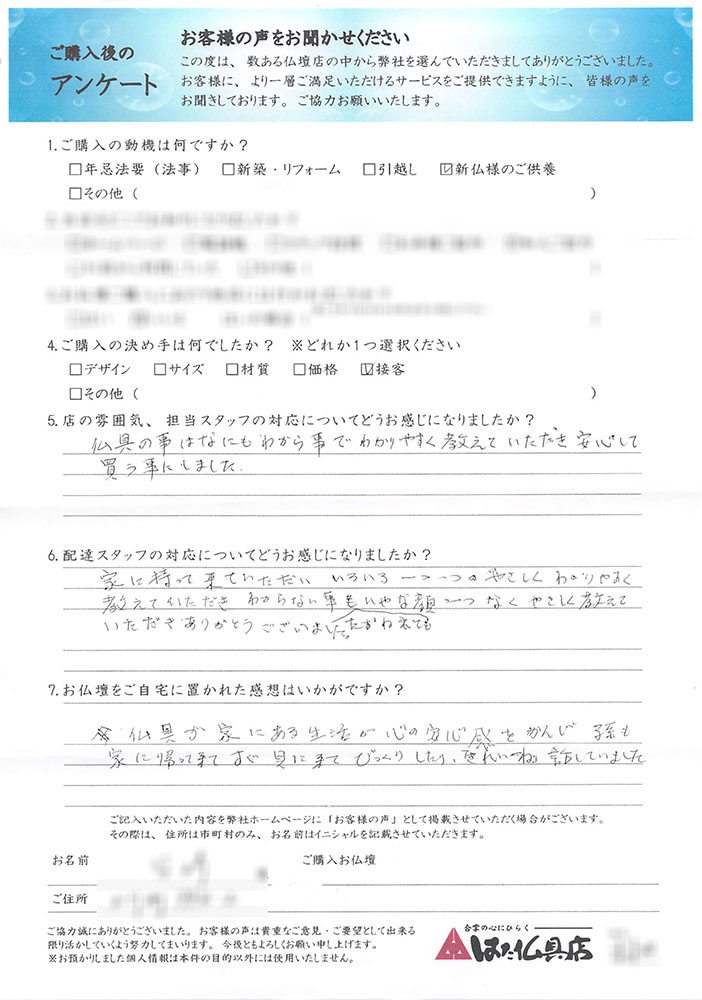 ご購入後の
アンケート
お客様の声をお聞かせください
この度は、数ある仏壇店の中から弊社を選んでいただきましてありがとうございました。
お客様に、より一層ご満足いただけるサービスをご提供できますように、皆様の声を
お聞きしております。ご協力お願いいたします。
1.ご購入の動機は何ですか？
□年忌法要（法事） □新築・リフォーム □引越し ☑新仏様のご供養
□その他（ ）
4.ご購入の決め手は何でしたか？ ※どれか1つ選択ください
□デザイン □サイズ □材質 □価格 ☑接客
□その他（ ）
5.店の雰囲気、担当スタッフの対応についてどうお感じになりましたか？
仏具の事はなにもわから事でわかりやすく教えていただき安心して
買う事にしました.
6.配達スタッフの対応についてどうお感じになりましたか？
家に持って来ていただい いろいろ一つ一つのやさしくわかりやすく
教えていただきわからない事もいやな顔一つなくやさしく教えて
いただきありがとうございました。
7.お仏壇をご自宅に置かれた感想はいかがですか？
仏具が家にある生活が心の安心感をかんじ 孫も
家に帰って来てすぐ見に来てびっくりしたり、きれいね。話していました
ご記入いただいた内容を弊社ホームページに「お客様の声」として掲載させていただく場合がございます。
その際は、住所は市町村のみ、お名前はイニシャルを記載させていただきます。
お名前 ご購入お仏壇
ご住所
ご協力誠にありがとうございました。お客様の声は貴重なご意見・ご要望として出来る
限り活かしていくよう努力してまいります。今後ともよろしくお願い申し上げます。
※お預かりしました個人情報は本件の目的以外には使用いたしません。
合掌の心にひらく
はた仏具店